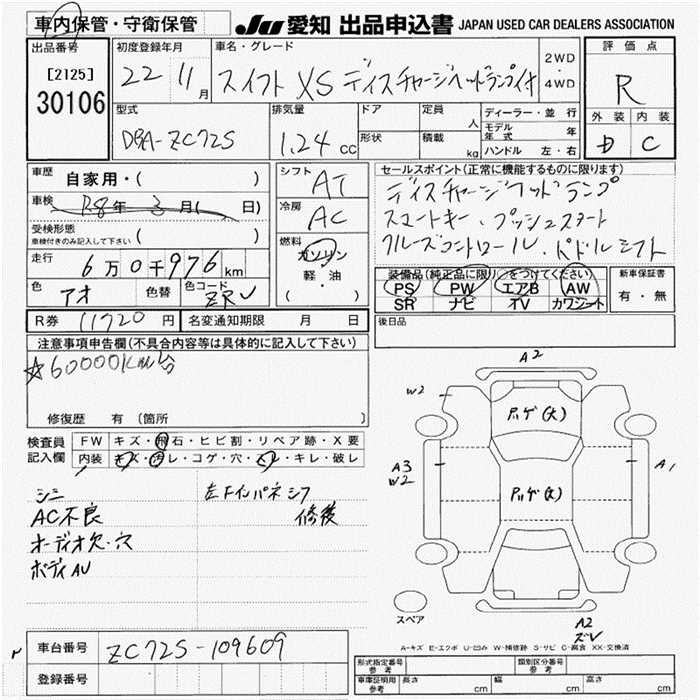 車内保管・守衛保管
JU 愛知 出品申込書 JAPAN USED CAR DEALERS ASSOCIATION
出品番号
[2125]
30106
初度登録年月
22 11月
車名・グレード
スイフト XS ディスチャージヘッドランプ付
2WD
・
4WD
評価点
R
外装 内装
D C
型式
DBA-ZC72S
排気量
1.24 cc
ドア
形状
定員
人
積載
kg
ディーラー・並行
モデル年式 年
ハンドル 左・右
車歴
自家用・( )
車検
R8年 3月( 日)
受検形態
車検付きのみ記入して下さい ( )
走行
6万0千976km
色
アオ
色替
色コード
ZRV
シフト
AT
冷房
AC
燃料
ガソリン
軽・油
( )
セールスポイント(正常に機能するものに限ります)
ディスチャージヘッドランプ
スマートキー、プッシュスタート
クルーズコントロール、パドルシフト
装備品(純正品に限り○をつけてください)
PS PW エアB AW
SR ナビ TV カワシート
新車保証書
有・無
R券 11720 円
名変通知期限 月 日
後日品
注意事項申告欄(不具合内容等は具体的に記入して下さい)
☆60000Km台
修復歴 有 〔箇所 〕
検査員
記入欄
FW キズ・飛石・ヒビ割・リペア跡・X要
内装 キズ・汚レ・コゲ・穴・スレ・キレ・破レ
シミ
AC不良
オーディオ欠・穴
ボディAU
左下インパネシフ
修後
A2
W2
アッゲ(大)
A3
W2
A1
アッゲ(大)
スペア
A2
ズV
A-キズ E-エクボ U-凹み W-補修跡 S-サビ C-腐食 XX-交換済
車台番号
ZC72S-109609
登録番号
形式指定番号
参考
類別区分番号
参考
車庫証明用
参考
長さ cm
幅 cm
高さ cm